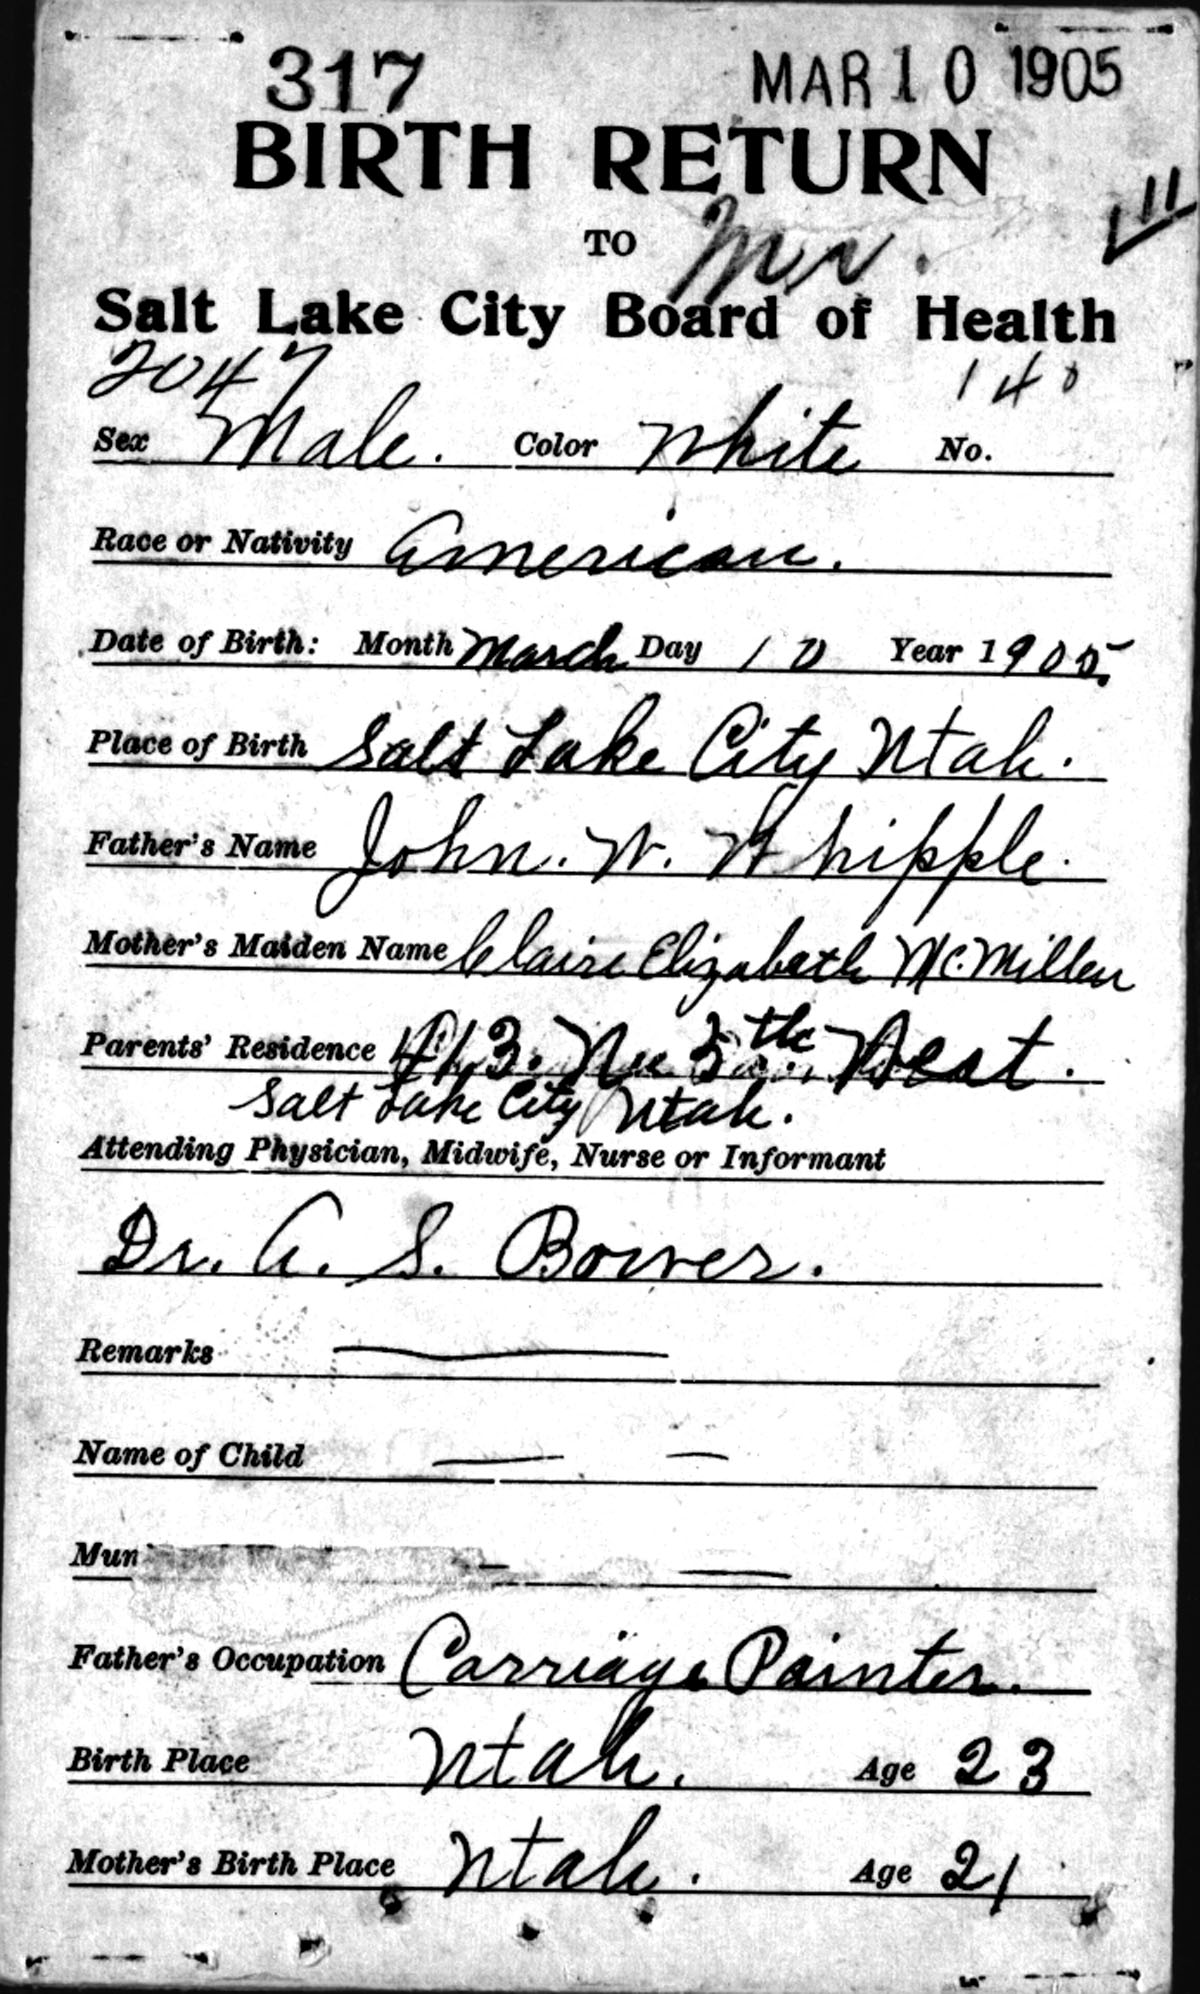 317 MAR 10 1905
BIRTH RETURN
TO
Salt Lake City Board of Health
2047 140
Sex Male. Color White No.
Race or Nativity American.
Date of Birth: Month March Day 10 Year 1905.
Place of Birth Salt Lake City Utah.
Father's Name John. W. Whipple.
Mother's Maiden Name Claire Elizabeth McMillen
Parents' Residence 413. No 5th West.
Salt Lake City Utah.
Attending Physician, Midwife, Nurse or Informant
Dr. A. S. Bower.
Remarks
Name of Child
Father's Occupation Carriage Painter.
Birth Place Utah. Age 23
Mother's Birth Place Utah. Age 21